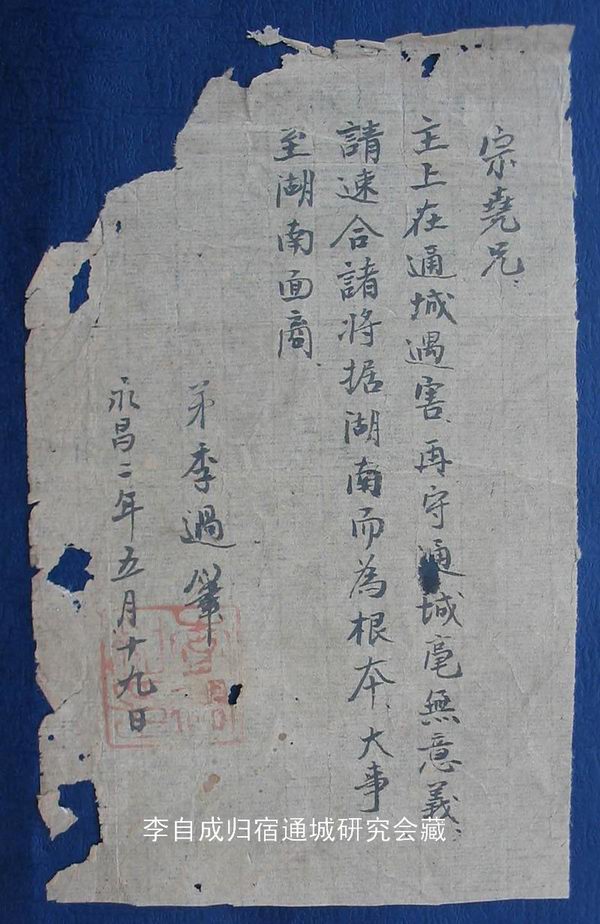 宗堯兄：
主上在通城遇害、再守通城毫無意義：
請速合諸將据湖南而為根本、大事
至湖南面商、
弟季過筆
永昌二年五月十九日
李自成归宿通城研究会藏